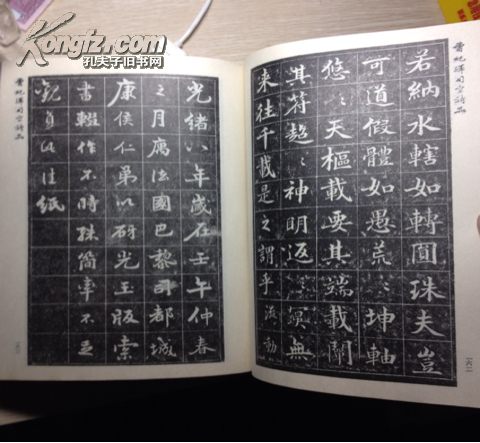 Kongfz.com
孔夫子旧书网
曹妃傳司空詩品
若納水輨如轉圓珠夫豈
可道假體如愚荒〻坤軸
悠〻天樞載要其端載聞
其符超〻神明返〻冥無
来往千載是之謂乎 流動
光緒八年歲在壬午仲春
之月寓法國巴黎司都城
康侯仁弟以研光玉版索
書輟作不時殊簡率不足
觀負此佳紙